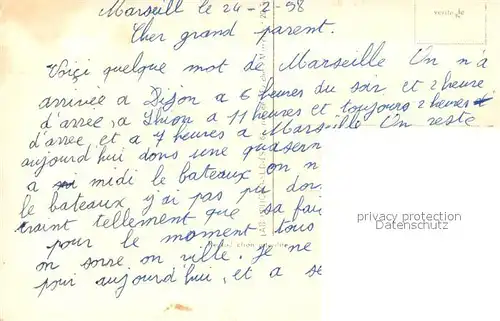 Marseill le 24-2-58
Cher grand parent.
Voiçi quelque mot de Marseille On n'a
arrivée a Dijon a 6 heures du soir et 2 heure
d'arree, a Lhion a 11 heures et toujours 2 heures
d'arree, et a 7 heures a Marseille On reste
aujourd'hui dans une quasern
a midi le bateaux on n
le bateaux y'ai pas pu dor
traint tellement que sa fai
pour le moment tous
on sorre on ville. Je ne
pour aujourd'hui, et a se
privacy protection
Datenschutz